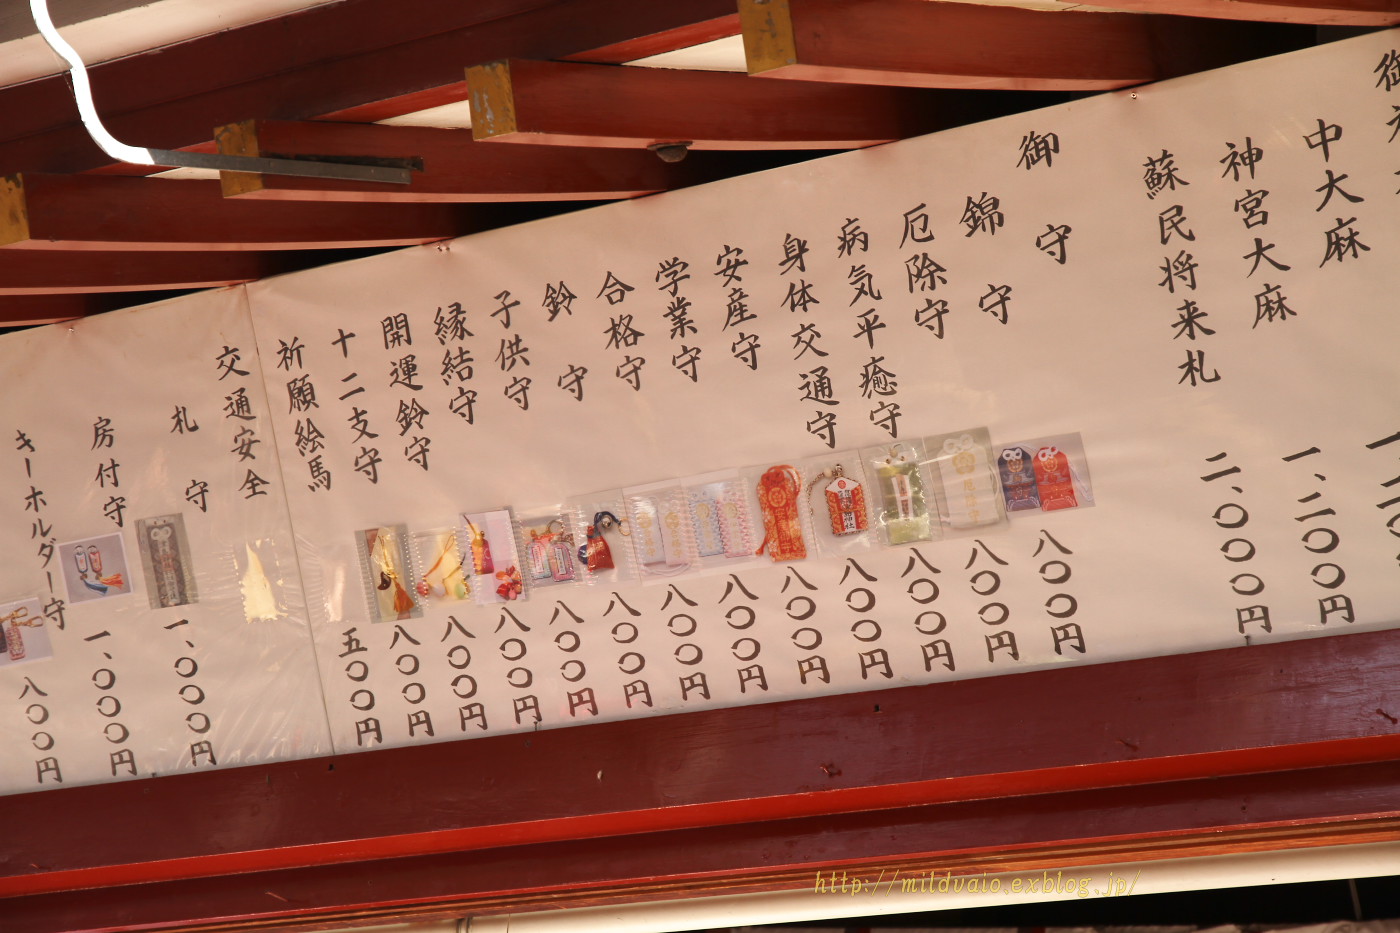 中大麻
神宮大麻
蘇民将来札
御守
錦守
厄除守
病気平癒守
身体交通守
安産守
学業守
合格守
鈴守
子供守
縁結守
開運鈴守
十二支守
祈願絵馬
交通安全
札守
房付守
キーホルダー守
一、二〇〇円
二、〇〇〇円
八〇〇円
八〇〇円
八〇〇円
八〇〇円
八〇〇円
八〇〇円
八〇〇円
八〇〇円
八〇〇円
八〇〇円
八〇〇円
八〇〇円
五〇〇円
一、〇〇〇円
一、〇〇〇円
八〇〇円
http://mildvaio.exblog.jp/